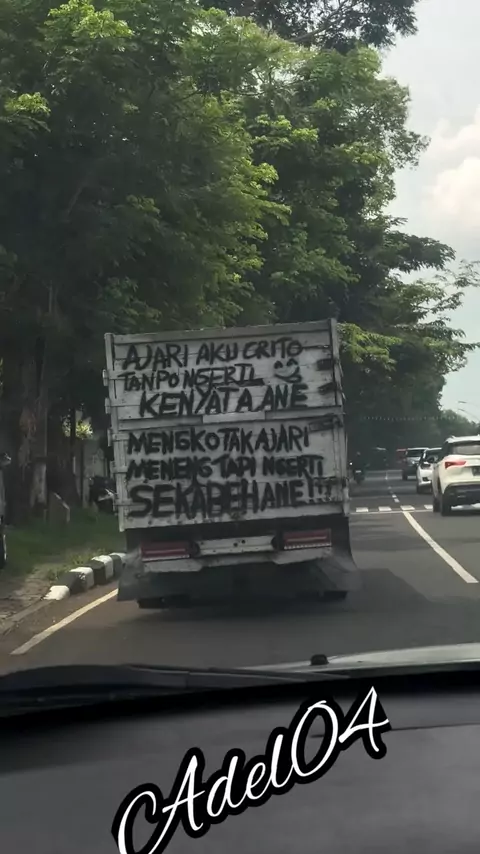 AJARI AKU CRITO
TANPO NGERTI
KENYATAANE
MENGKO TAK AJARI
MENENG TAPI NGERTI
SEKABEHANE!!!
CAdel04